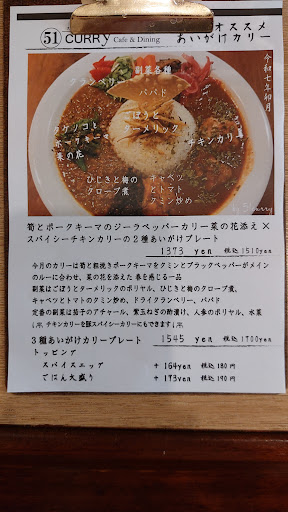 51 CURRY Cafe & Dining
オススメ
あいがけカリー
令和七年卯月
副菜各種
クランベリー
パパド
タケノコと
ポークキーマ
菜の花
ごぼうと
ターメリック
チキンカリー
ひじきと梅の
クローブ煮
キャベツ
とトマト
クミン炒め
筍とポークキーマのジーラペッパーカリー菜の花添え×
スパイシーチキンカリーの2種あいがけプレート
1373 yen 税込 1510yen
今月のカリーは筍と粗挽きポークキーマをクミンとブラックペッパーがメイン
のルーに合わせ、菜の花を添えた 春を感じる一品
副菜はごぼうとターメリックのポリヤル、ひじきと梅のクローブ煮、
キャベツとトマトのクミン炒め、ドライクランベリー、パパド
定番の副菜は茄子のアチャール、紫玉ねぎの酢漬け、人参のポリヤル、水菜
チキンカリーを豚スパイシーカリーにもできます
3種あいがけカリープレート 1545 yen 税込 1700yen
トッピング
スパイスエッグ + 164yen 税込 180円
ごはん大盛り + 173yen 税込 190円